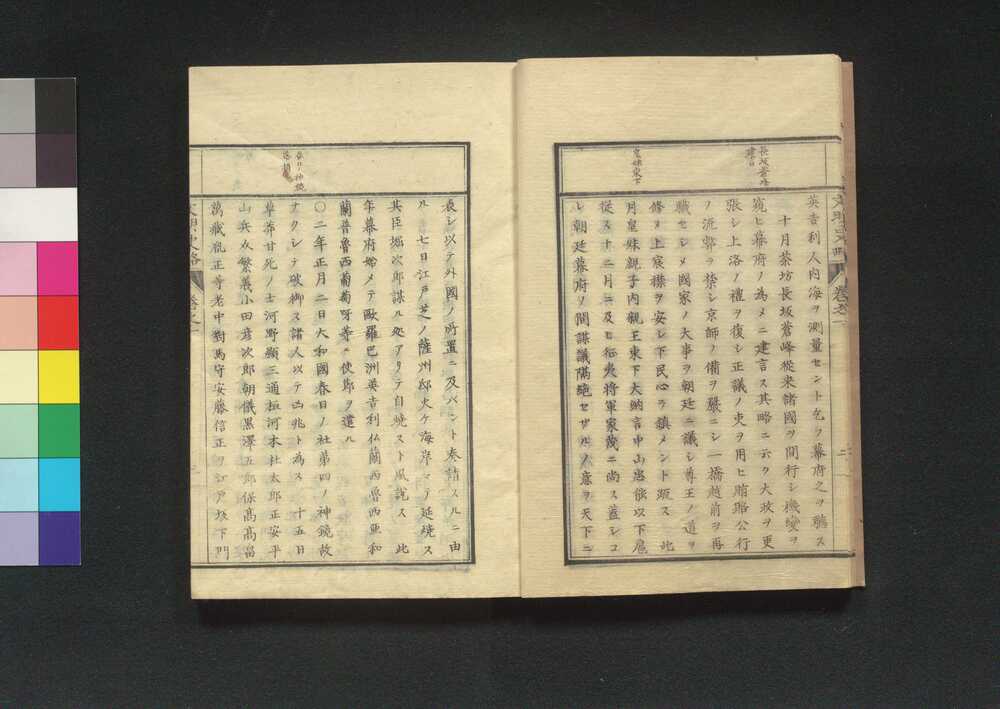 長坂蒼峰
建白
皇妹東下
英吉利人内海ヲ測量セント乞フ幕府之ヲ聽ス
十月茶坊長坂蒼峰從來諸國ヲ間行シ機變ヲ
窺ヒ幕府ノ為メニ建言ス其略ニ云ク大政ヲ更
張シ上洛ノ禮ヲ復シ正議ノ吏ヲ用ヒ賄賂公行
ノ流弊ヲ禁シ京師ノ備ヲ嚴ニシ一橋越前ヲ再
職セシメ國家ノ大事ヲ朝廷ニ議シ尊王ノ道ヲ
修メ上宸襟ヲ安シ下民心ヲ鎮メント
此
月皇妹親子内親王東下大納言中山忠能以下扈
從ス十二月ニ及ヒ征夷將軍家茂ニ尚ス蓋シコ
レ朝廷幕府ノ間謀議隔絶セザルノ意ヲ天下ニ
表シ以テ外國ノ所置ニ及バント奏請スルニ由
ル 七日江戸芝ノ薩州邸火ケ海岸マテ延焼ス
其臣堀次郎謀ル処アリテ自焼スト風説ス 此
年幕府始メテ歐羅巴洲英吉利仏蘭西魯西亜和
蘭普魯西葡萄呀等ニ使節ヲ遣ル
〇二年正月二日大和國春日ノ社第四ノ神鏡故
ナクシテ破御ス諸人以テ凶兆ト為ス 十五日
草莽甘死ノ士河野顯三通桓河本杜太郎正安平
山兵介繁義小田彦次郎朝儀黒澤五郎保高高畠
萬藏胤正等老中對馬守安藤信正ヲ江戸坂下門
文明史略
卷之一